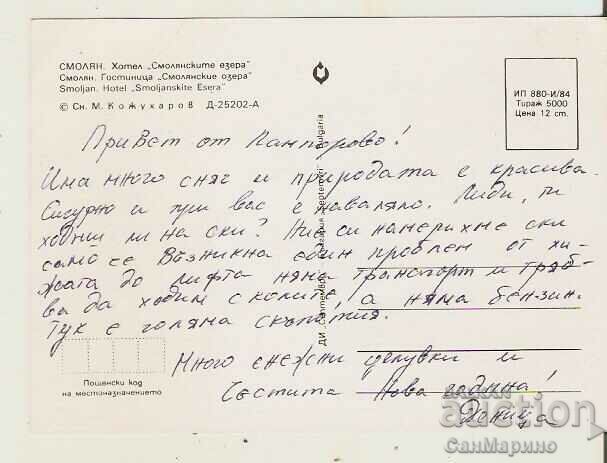 СМОЛЯН. Хотел „Смолянските езера"
Смолян. Гостиница „Смолянские озера"
Smoljan. Hotel "Smoljanskite Esera"
© Сн. М. Кожухаров Д-25202-А
ИП 880-И/84
Тираж 5000
Цена 12 ст.
Привет от Пампорово!
Има много сняг и природата е красива.
Сигурно и при вас е наваляло. Лиди, ти
ходиш ли на ски? Ние си намерихме ски
само се възникна един проблем от хи-
жата до лифта няма транспорт и тряб-
ва да ходим с колите, а няма бензин.
Тук е голяма скъпатия.
Много снежни целувки и
Честита Нова година!
Дончо
Пощенски код
на местоназначението
ДИ „Септември" Bulgaria
auction
СанМарино